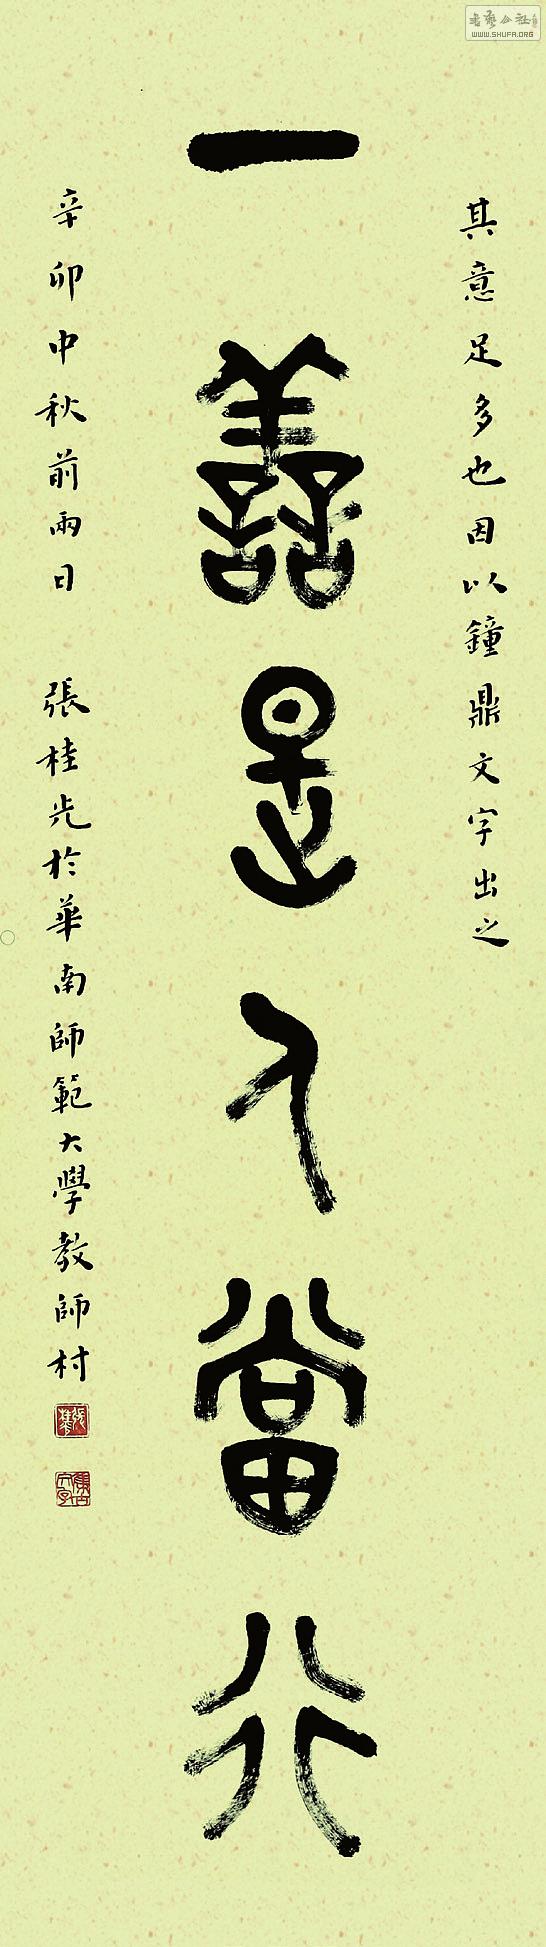 其意足多也因以鐘鼎文字出之
一善是人當行
辛卯中秋前兩日 張桂光於華南師範大學教師村
書藝公社
WWW.SHUFA.ORG